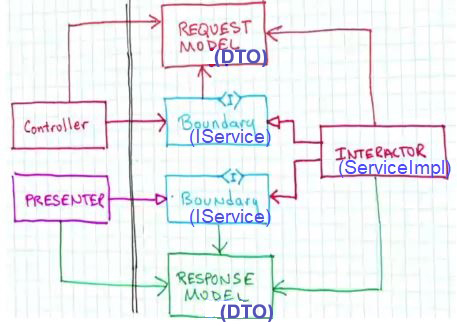 REQUEST
MODEL
(DTO)
<I>
Controller
Boundary
(IService)
INTERACTOR
(ServiceImpl)
<I>
PRESENTER
Boundary
(IService)
RESPONSE
MODEL
(DTO)